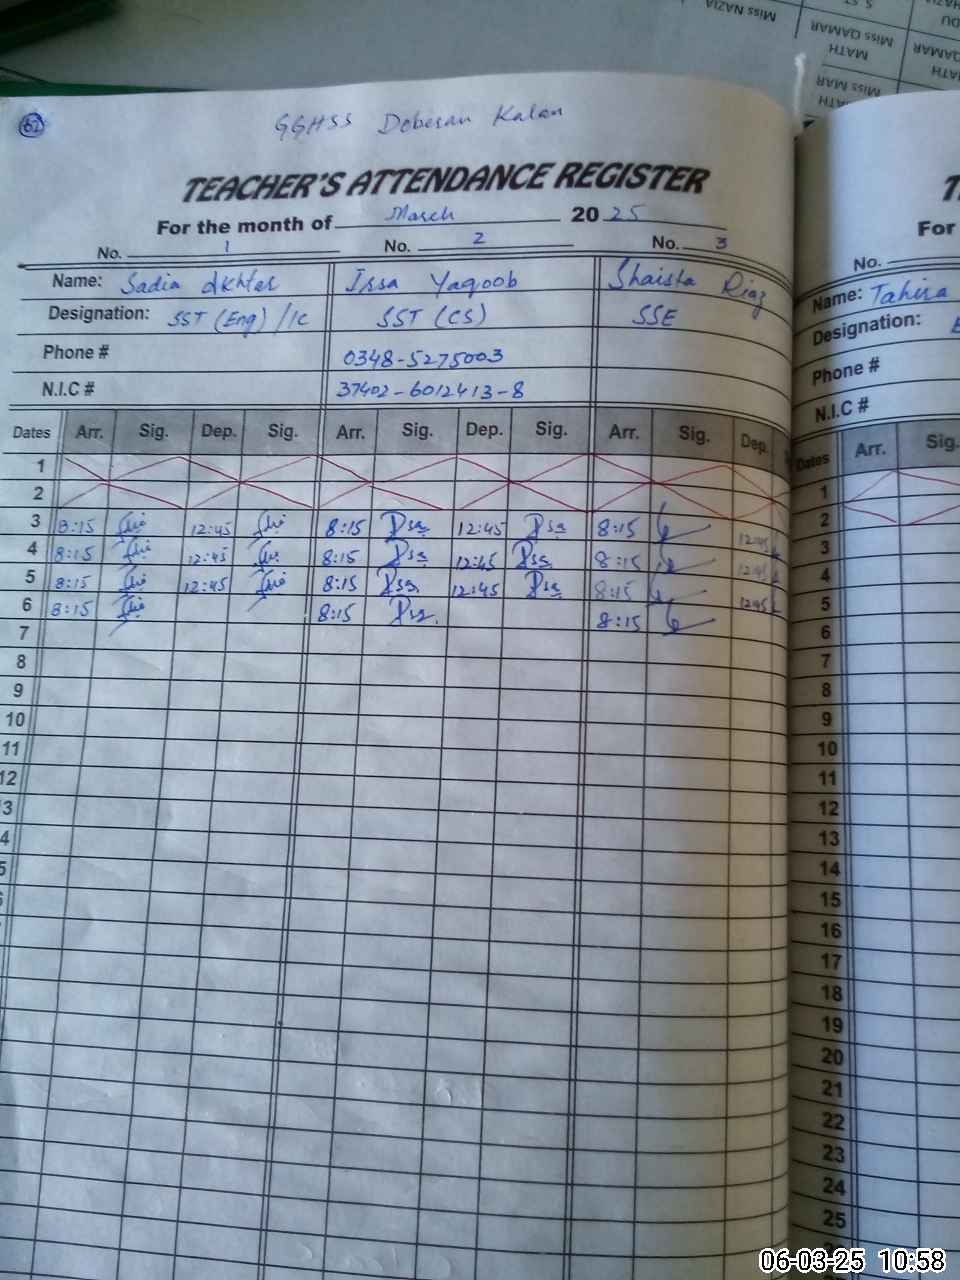 Miss NAZIA
MATH
Miss QAMAR
Miss MAR
62
GGHSS Doberan Kalan
TEACHER'S ATTENDANCE REGISTER
For the month of March 2025
No. 1 No. 2 No. 3
Name: Sadia Akhter Irsa Yaqoob Shaista Riaz
Designation: SST (Eng) / IC SST (CS) SSE
Phone # 0348-5275003
N.I.C # 37402-6012413-8
Dates Arr. Sig. Dep. Sig. Arr. Sig. Dep. Sig. Arr. Sig. Dep.
1
2
3 8:15 12:45 8:15 12:45 8:15 12:45
4 8:15 12:45 8:15 12:45 8:15 12:45
5 8:15 12:45 8:15 12:45 8:15 12:45
6 8:15 8:15 8:15
7
8
9
10
11
12
3
4
5
For
No.
Name: Tahira
Designation:
Phone #
N.I.C #
Dates Arr. Sig.
1
2
3
4
5
6
7
8
9
10
11
12
13
14
15
16
17
18
19
20
21
22
23
24
25
06-03-25 10:58